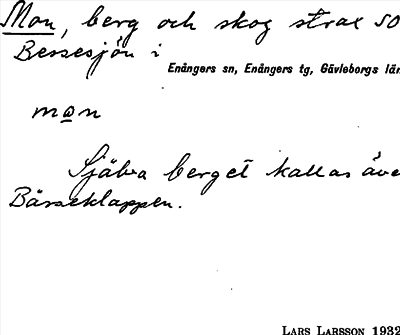 Mon, berg och skog strax SO
Bersesjön i
Enångers sn, Enångers tg, Gävleborgs län
mon
Själva berget kallas äve
Bärseklappen.
LARS LARSSON 1932